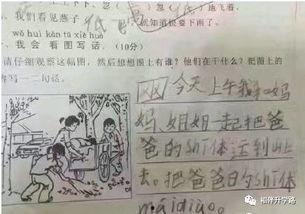 我们看见燕子
就知道很要下雨了。
wǒ huì kàn tú xiě huà
我会看图写话。(10分)
请仔细观察这幅图，然后想想图上有谁？他们在干什么？把图上的
写一二句话。
今天上午我和妈
妈、姐姐一起把爸
爸的shī体运到山上
去。把爸爸的shī体
mái diào。
相伴升学路